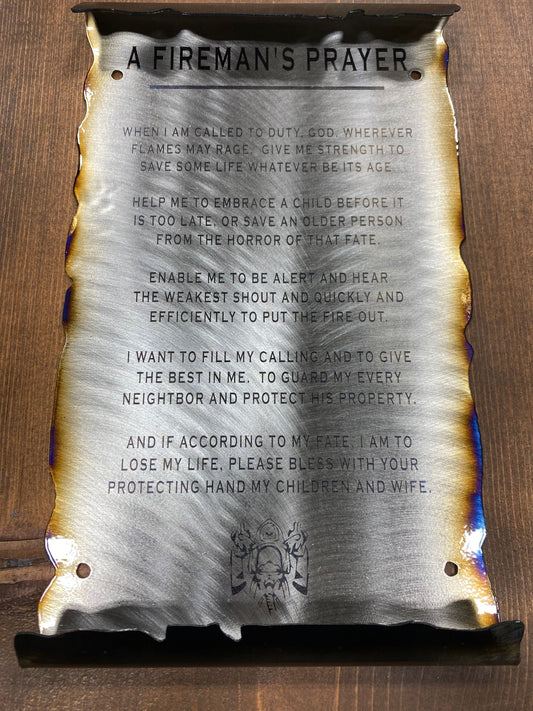 A FIREMAN'S PRAYER
WHEN I AM CALLED TO DUTY, GOD. WHEREVER
FLAMES MAY RAGE. GIVE ME STRENGTH TO
SAVE SOME LIFE WHATEVER BE ITS AGE.
HELP ME TO EMBRACE A CHILD BEFORE IT
IS TOO LATE, OR SAVE AN OLDER PERSON
FROM THE HORROR OF THAT FATE.
ENABLE ME TO BE ALERT AND HEAR
THE WEAKEST SHOUT AND QUICKLY AND
EFFICIENTLY TO PUT THE FIRE OUT.
I WANT TO FILL MY CALLING AND TO GIVE
THE BEST IN ME. TO GUARD MY EVERY
NEIGHTBOR AND PROTECT HIS PROPERTY.
AND IF ACCORDING TO MY FATE, I AM TO
LOSE MY LIFE, PLEASE BLESS WITH YOUR
PROTECTING HAND MY CHILDREN AND WIFE.